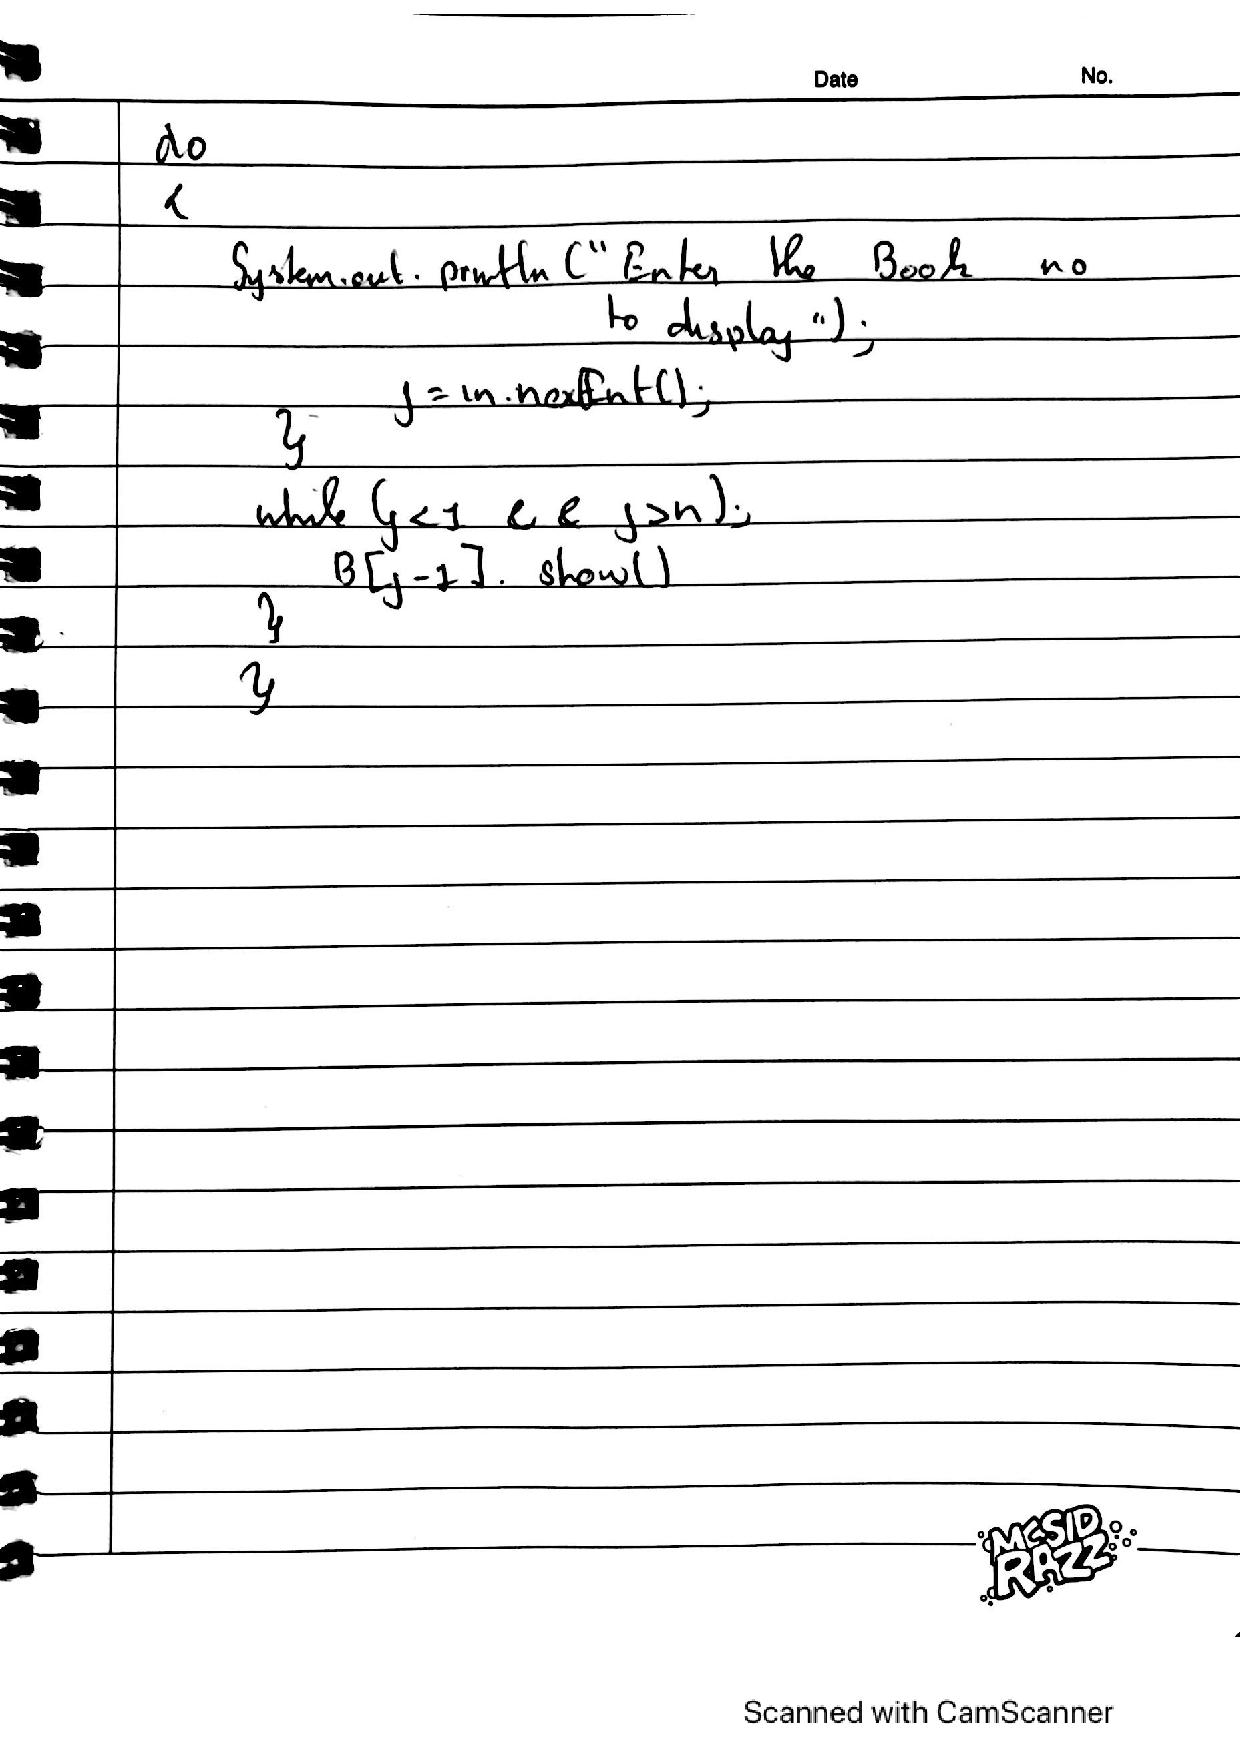 Date No.
do
{
System.out.println("Enter the Book no
to display");
j = in.nextInt();
}
while (j<1 && j>n);
B[j-1]. show()
}
}
MCSID
RAZZ
Scanned with CamScanner